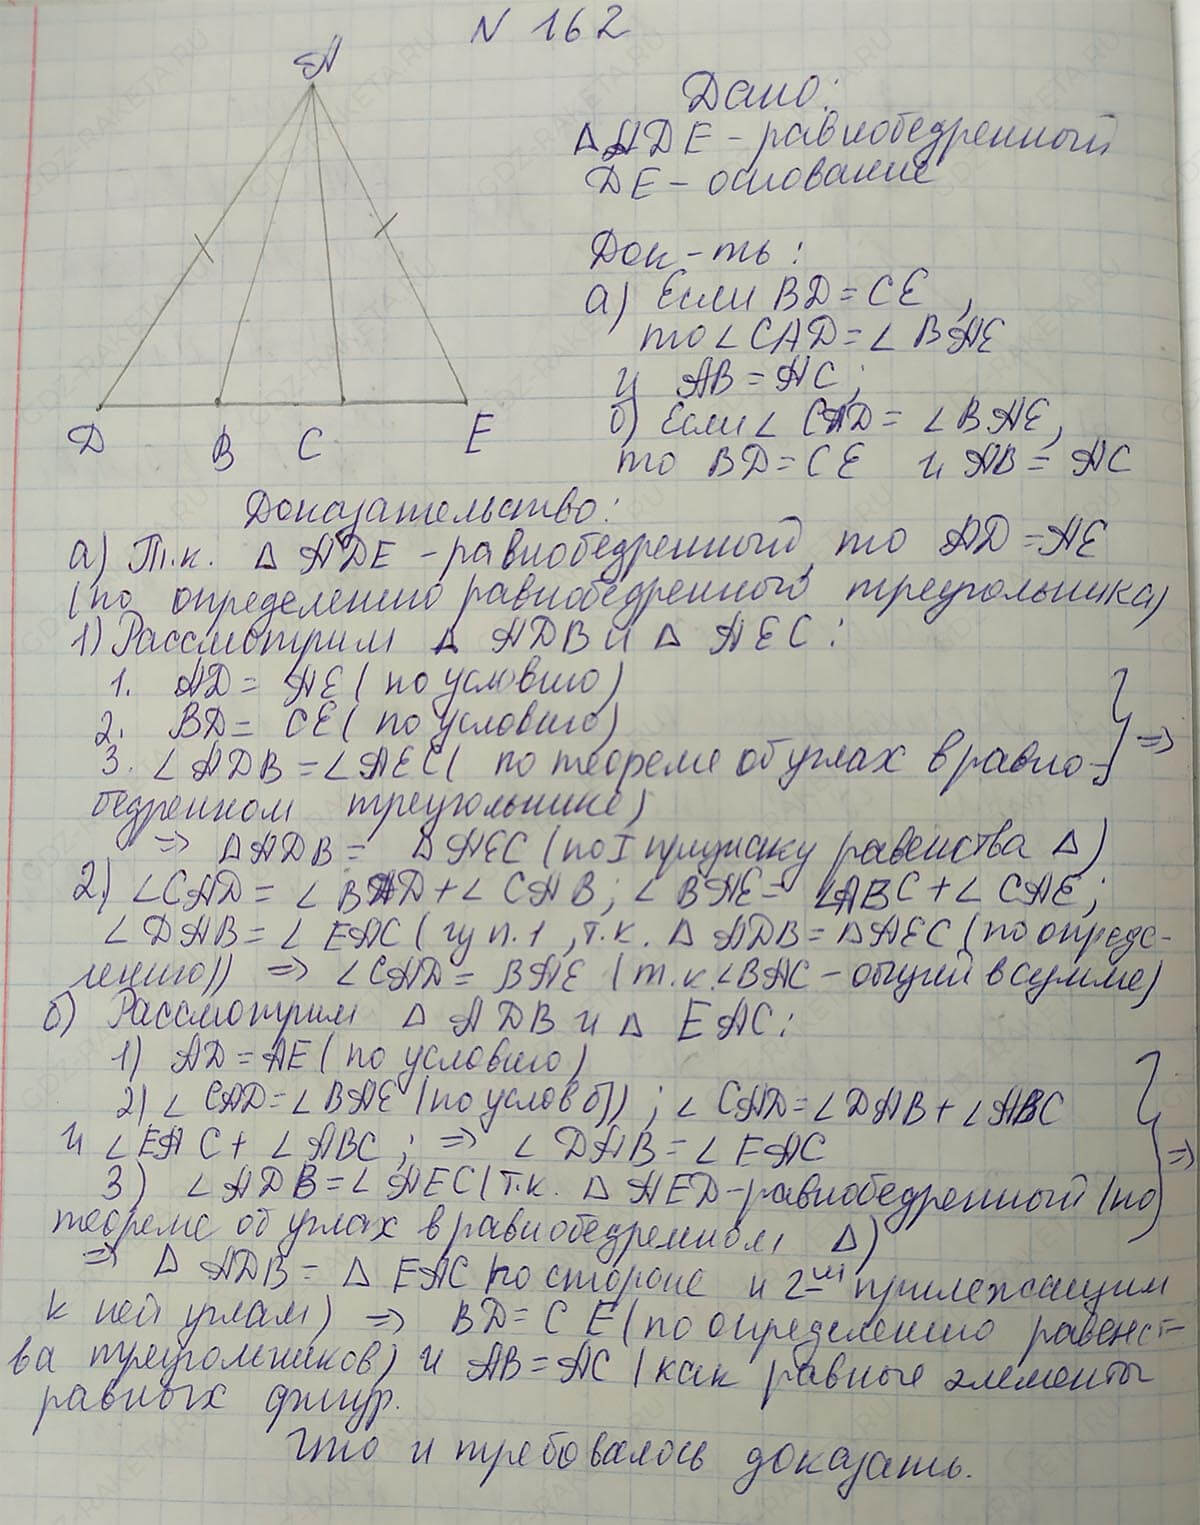 N 162
A
Дано:
Δ ADE - равнобедренный
DE - основание
Док-ть:
а) Если BD = CE,
то ∠CAD = ∠BAE
и AB = AC;
б) Если ∠CAD = ∠BAE,
то BD = CE и AB = AC
D B C E
Доказательство:
а) Т.к. Δ ADE - равнобедренный, то AD = AE
(по определению равнобедренного треугольника)
1) Рассмотрим Δ ADB и Δ AEC:
1. AD = AE (по условию)
2. BD = CE (по условию)
3. ∠ADB = ∠AEC (по теореме об углах в равно-
бедренном треугольнике) } =>
=> ΔADB = ΔAEC (по I признаку равенства Δ)
2) ∠CAD = ∠BAD + ∠CAB; ∠BAE = ∠ABC + ∠CAE;
∠DAB = ∠EAC (из п.1, т.к. ΔADB = ΔAEC (по опреде-
лению)) => ∠CAD = BAE (т.к. ∠BAC - общий в сумме)
б) Рассмотрим Δ ADB и Δ EAC:
1) AD = AE (по условию)
2) ∠CAD = ∠BAE (по услов б)); ∠CAD = ∠DAB + ∠ABC
и ∠EAC + ∠ABC; => ∠DAB = ∠EAC } =>
3) ∠ADB = ∠AEC (т.к. Δ AED - равнобедренный (по
теореме об углах в равнобедренном Δ)
=> Δ ADB = Δ EAC по стороне и 2-ум прилежащим
к ней углам) => BD = CE (по определению равенст-
ва треугольников) и AB = AC (как равные элементы
равных фигур.
Что и требовалось доказать.